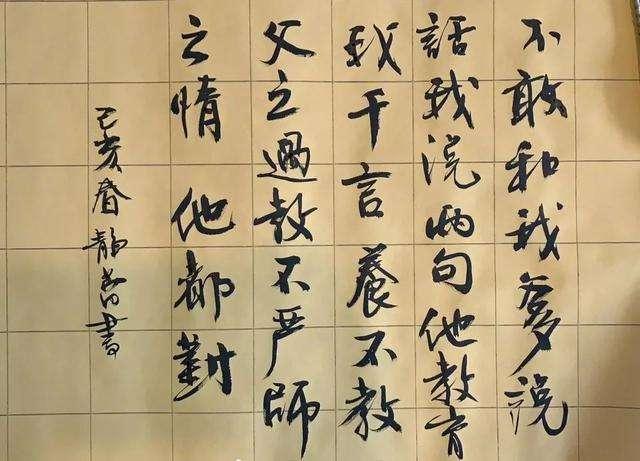 不敢和我爹説
話我説兩句他教育
我千言養不教
父之過教不严師
之情他都對
己亥春靜書